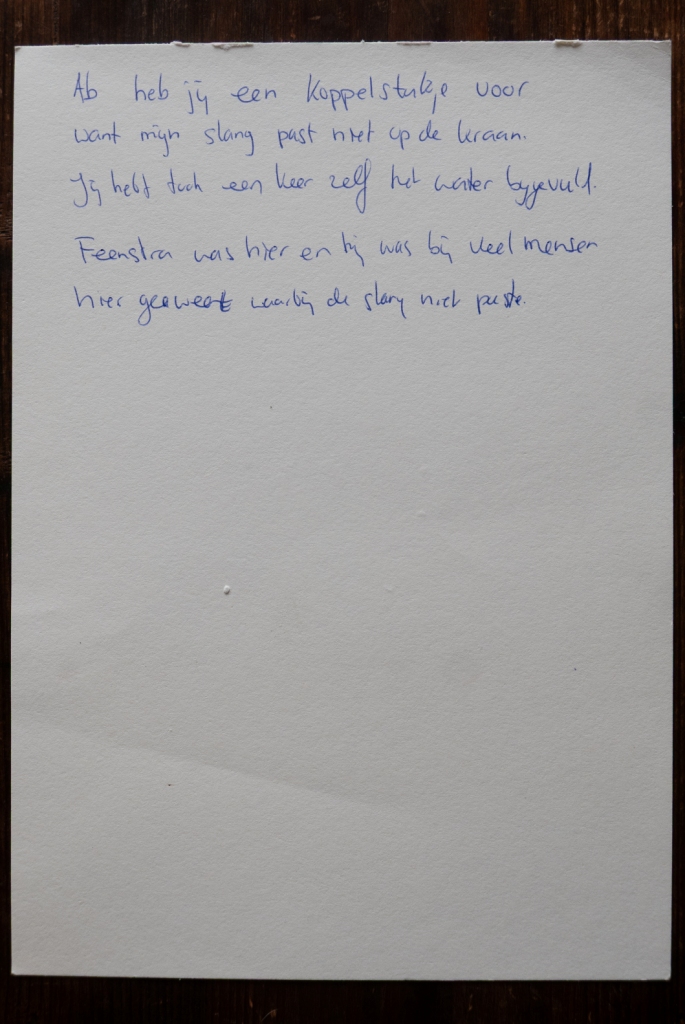 Ab heb jij een koppelstukje voor
want mijn slang past niet op de kraan.
Jij hebt toch een keer zelf het water bijgevuld.
Feenstra was hier en hij was bij veel mensen
hier geweest waarbij de slang niet paste.